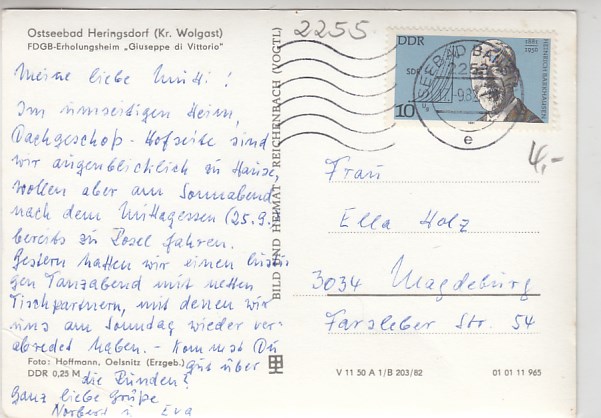 Ostseebad Heringsdorf (Kr. Wolgast)
FDGB-Erholungsheim „Giuseppe di Vittorio“
Meine liebe Mutti!
Im umseitigen Heim,
Dachgeschoß-Hofseite sind
wir augenblicklich zu Hause,
wollen aber am Sonnabend
nach dem Mittagessen (25.9.)
bereits zu Posel fahren.
Gestern hatten wir einen lusti-
gen Tanzabend mit netten
Tischpartnern, mit denen wir
uns am Sonntag wieder ver-
abredet haben. - Kommst Du
gut über
die Runden?
Ganz liebe Grüße
Norbert u. Eva
Foto: Hoffmann, Oelsnitz (Erzgeb.)
DDR 0,25 M
BILD UND HEIMAT REICHENBACH (VOGTL)
2255
DDR
10
1881
1956
HEINRICH BARKHAUSEN
SEEBAD BAN
2252
e
4,-
Frau
Ella Holz
3034 Magdeburg
Farsleber Str. 54
V 11 50 A 1/B 203/82
01 01 11 965